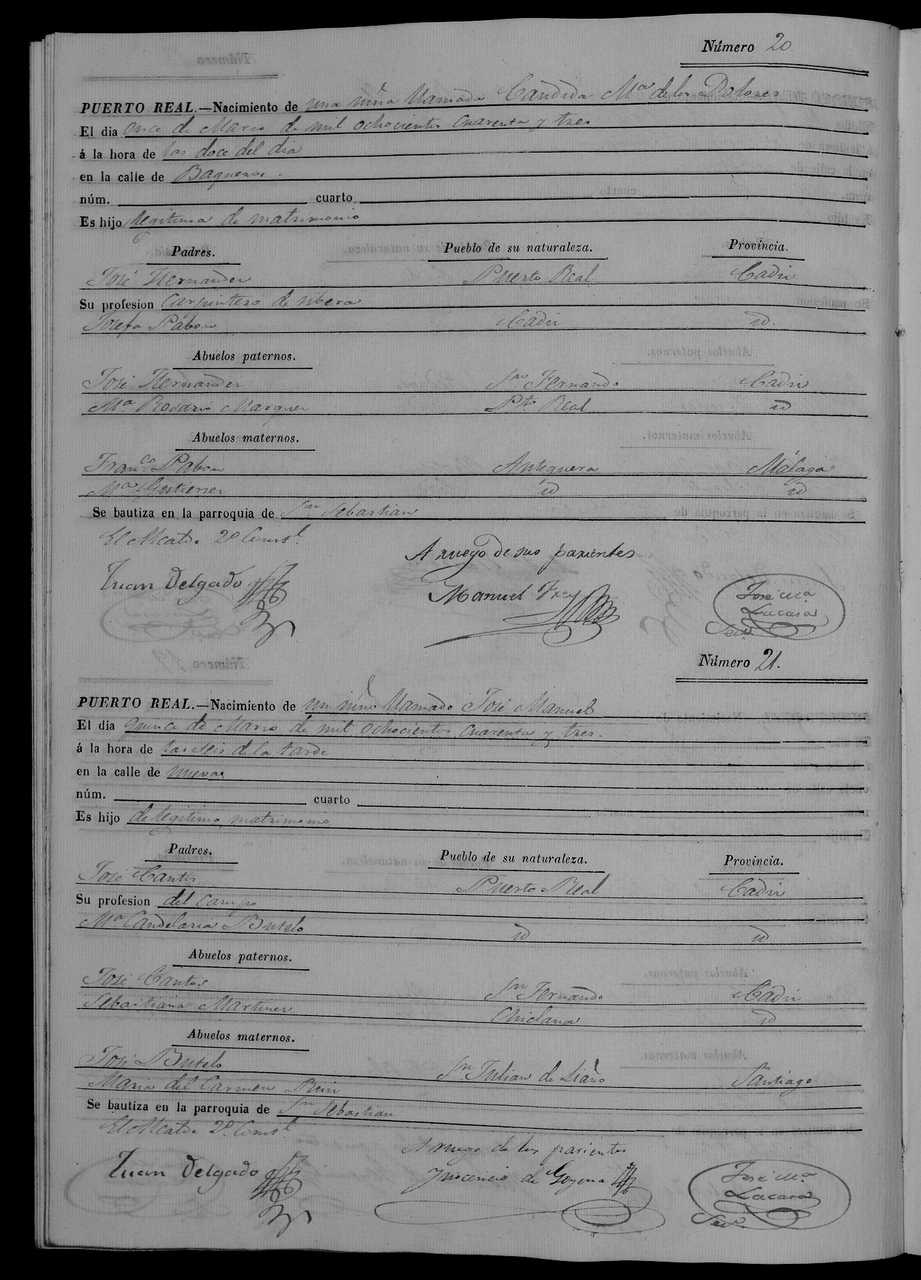 Número 20
PUERTO REAL.—Nacimiento de una niña llamada Candida Mª de los Dolores
El dia once de Marzo de mil ochocientos cuarenta y tres
á la hora de las doce del dia
en la calle de
núm. cuarto
Es hijo legitima de matrimonio
Padres. Pueblo de su naturaleza. Provincia.
José Hernandez Puerto Real Cadiz
Su profesion carpintero de ribera
Josefa Pabon Cadiz id.
Abuelos paternos.
José Hernandez Sn Fernando Cadiz
Mª Rosario Marquez Pto Real id
Abuelos maternos.
Franco Pabon Antequera Málaga
Mª Gutierrez id id
Se bautiza en la parroquia de Sn Sebastian
El Alcalde 2º Const.l
A ruego de sus parientes
Juan Delgado Manuel José Mª
Lacasa
Srio
Número 21.
PUERTO REAL.—Nacimiento de un niño llamado José Manuel
El dia quince de Marzo de mil ochocientos cuarenta y tres.
á la hora de las seis d la tarde
en la calle de nueva
núm. cuarto
Es hijo de legitimo matrimonio
Padres. Pueblo de su naturaleza. Provincia.
José Cantos Puerto Real Cadiz
Su profesion del campo
Mª Candelaria Butelo id id
Abuelos paternos.
José Cantos Sn Fernando Cadiz
Sebastiana Martinez Chiclana id
Abuelos maternos.
José Butelo Sn Julian de Santiago
Maria del Carmen
Se bautiza en la parroquia de Sn Sebastian
El Alcalde 2º Const.l
A ruego de los parientes
Juan Delgado Inocencio de Goyena José Mª
Lacasa
Srio